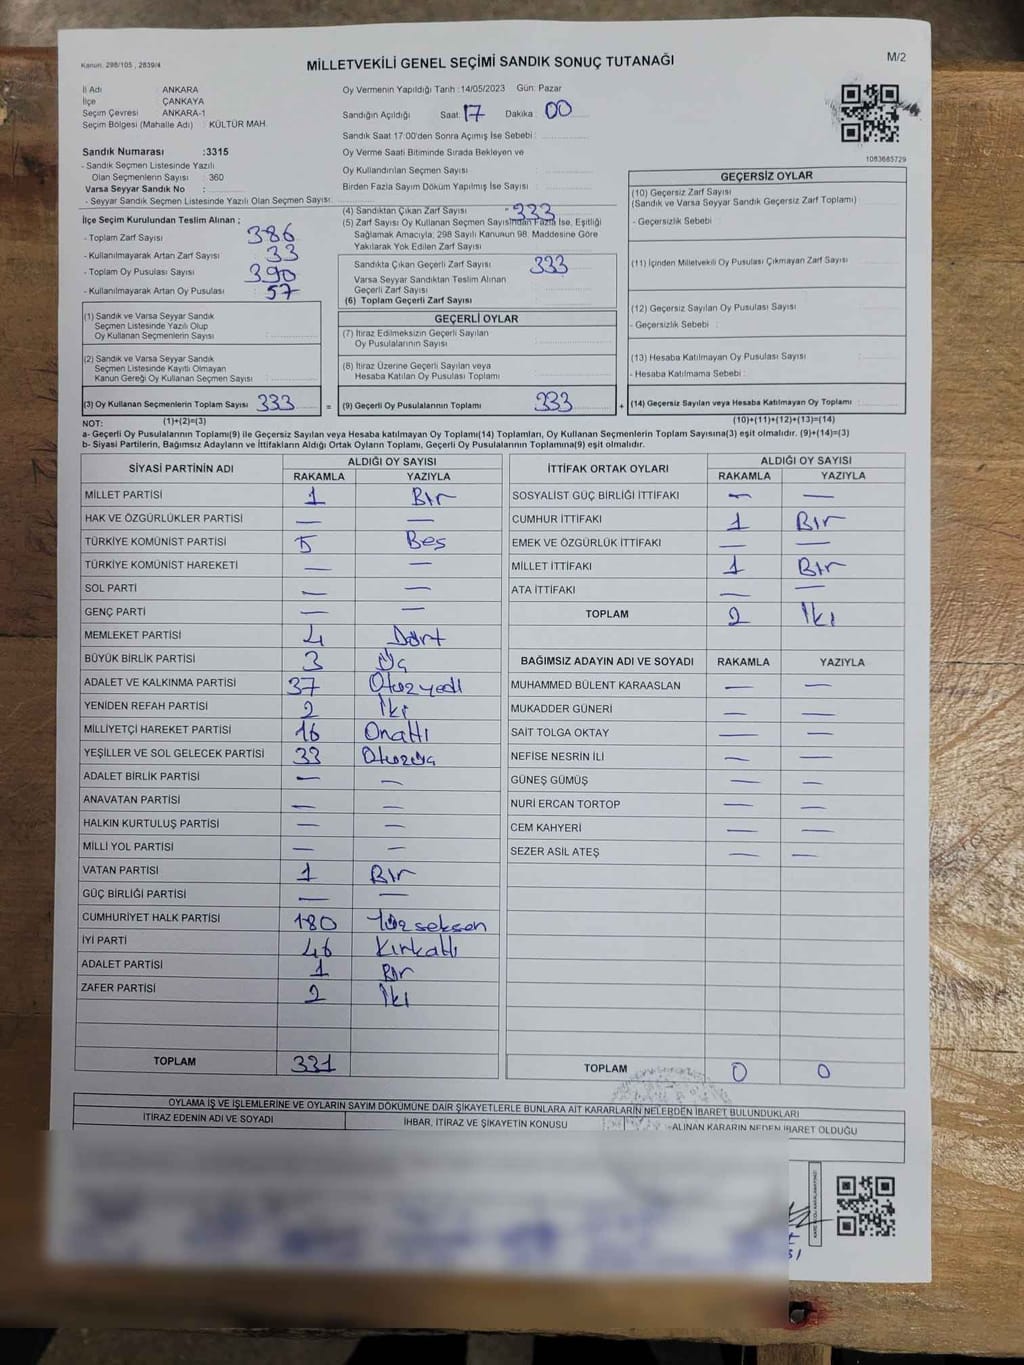 Kanun: 298/105 , 2839/4
MİLLETVEKİLİ GENEL SEÇİMİ SANDIK SONUÇ TUTANAĞI
M/2
İl Adı : ANKARA
İlçe : ÇANKAYA
Seçim Çevresi : ANKARA-1
Seçim Bölgesi (Mahalle Adı) : KÜLTÜR MAH.
Sandık Numarası :3315
- Sandık Seçmen Listesinde Yazılı
Olan Seçmenlerin Sayısı : 360
Varsa Seyyar Sandık No :
- Seyyar Sandık Seçmen Listesinde Yazılı Olan Seçmen Sayısı:
Oy Vermenin Yapıldığı Tarih :14/05/2023 Gün: Pazar
Sandığın Açıldığı Saat: 17 Dakika : 00
Sandık Saat 17:00'den Sonra Açımış İse Sebebi :
Oy Verme Saati Bitiminde Sırada Bekleyen ve
Oy Kullandırılan Seçmen Sayısı :
Birden Fazla Sayım Döküm Yapılmış İse Sayısı :
1083685729
İlçe Seçim Kurulundan Teslim Alınan ;
- Toplam Zarf Sayısı : 386
- Kullanılmayarak Artan Zarf Sayısı : 33
- Toplam Oy Pusulası Sayısı : 390
- Kullanılmayarak Artan Oy Pusulası : 57
(1) Sandık ve Varsa Seyyar Sandık
Seçmen Listesinde Yazılı Olup
Oy Kullanan Seçmenlerin Sayısı :
(2) Sandık ve Varsa Seyyar Sandık
Seçmen Listesinde Kayıtlı Olmayan
Kanun Gereği Oy Kullanan Seçmen Sayısı :
(3) Oy Kullanan Seçmenlerin Toplam Sayısı : 333 =
(4) Sandıktan Çıkan Zarf Sayısı : 333
(5) Zarf Sayısı Oy Kullanan Seçmen Sayısından Fazla İse, Eşitliği
Sağlamak Amacıyla; 298 Sayılı Kanunun 98. Maddesine Göre
Yakılarak Yok Edilen Zarf Sayısı :
Sandıkta Çıkan Geçerli Zarf Sayısı : 333
Varsa Seyyar Sandıktan Teslim Alınan
Geçerli Zarf Sayısı :
(6) Toplam Geçerli Zarf Sayısı :
GEÇERLİ OYLAR
(7) İtiraz Edilmeksizin Geçerli Sayılan
Oy Pusulalarının Sayısı :
(8) İtiraz Üzerine Geçerli Sayılan veya
Hesaba Katılan Oy Pusulası Toplamı :
(9) Geçerli Oy Pusulalarının Toplamı : 333 +
GEÇERSİZ OYLAR
(10) Geçersiz Zarf Sayısı
(Sandık ve Varsa Seyyar Sandık Geçersiz Zarf Toplamı) :
- Geçersizlik Sebebi :
(11) İçinden Milletvekil Oy Pusulası Çıkmayan Zarf Sayısı :
(12) Geçersiz Sayılan Oy Pusulası Sayısı :
- Geçersizlik Sebebi :
(13) Hesaba Katılmayan Oy Pusulası Sayısı :
- Hesaba Katılmama Sebebi :
(14) Geçersiz Sayılan veya Hesaba Katılmayan Oy Toplamı :
NOT: (1)+(2)=(3)
(10)+(11)+(12)+(13)=(14)
a- Geçerli Oy Pusulalarının Toplamı(9) ile Geçersiz Sayılan veya Hesaba katılmayan Oy Toplamı(14) Toplamları, Oy Kullanan Seçmenlerin Toplam Sayısına(3) eşit olmalıdır. (9)+(14)=(3)
b- Siyasi Partilerin, Bağımsız Adayların ve İttifakların Aldığı Ortak Oyların Toplamı, Geçerli Oy Pusulalarının Toplamına(9) eşit olmalıdır.
SİYASİ PARTİNİN ADI ALDIĞI OY SAYISI
RAKAMLA YAZIYLA
MİLLET PARTİSİ 1 Bir
HAK VE ÖZGÜRLÜKLER PARTİSİ — —
TÜRKİYE KOMÜNİST PARTİSİ 5 Beş
TÜRKİYE KOMÜNİST HAREKETİ — —
SOL PARTİ — —
GENÇ PARTİ — —
MEMLEKET PARTİSİ 4 Dört
BÜYÜK BİRLİK PARTİSİ 3 Üç
ADALET VE KALKINMA PARTİSİ 37 Otuzyedi
YENİDEN REFAH PARTİSİ 2 İki
MİLLİYETÇİ HAREKET PARTİSİ 16 Onaltı
YEŞİLLER VE SOL GELECEK PARTİSİ 33 Otuzüç
ADALET BİRLİK PARTİSİ — —
ANAVATAN PARTİSİ — —
HALKIN KURTULUŞ PARTİSİ — —
MİLLİ YOL PARTİSİ — —
VATAN PARTİSİ 1 Bir
GÜÇ BİRLİĞİ PARTİSİ — —
CUMHURİYET HALK PARTİSİ 180 Yüzseksen
İYİ PARTİ 46 Kırkaltı
ADALET PARTİSİ 1 Bir
ZAFER PARTİSİ 2 İki
TOPLAM 331
İTTİFAK ORTAK OYLARI ALDIĞI OY SAYISI
RAKAMLA YAZIYLA
SOSYALİST GÜÇ BİRLİĞİ İTTİFAKI — —
CUMHUR İTTİFAKI 1 Bir
EMEK VE ÖZGÜRLÜK İTTİFAKI — —
MİLLET İTTİFAKI 1 Bir
ATA İTTİFAKI — —
TOPLAM 2 İki
BAĞIMSIZ ADAYIN ADI VE SOYADI RAKAMLA YAZIYLA
MUHAMMED BÜLENT KARAASLAN — —
MUKADDER GÜNERİ — —
SAİT TOLGA OKTAY — —
NEFİSE NESRİN İLİ — —
GÜNEŞ GÜMÜŞ — —
NURİ ERCAN TORTOP — —
CEM KAHYERİ — —
SEZER ASİL ATEŞ — —
TOPLAM 0 0
OYLAMA İŞ VE İŞLEMLERİNE VE OYLARIN SAYIM DÖKÜMÜNE DAİR ŞİKAYETLERLE BUNLARA AİT KARARLARIN NELERDEN İBARET BULUNDUKLARI
İTİRAZ EDENİN ADI VE SOYADI İHBAR, İTİRAZ VE ŞİKAYETİN KONUSU ALINAN KARARIN NEDEN İBARET OLDUĞU